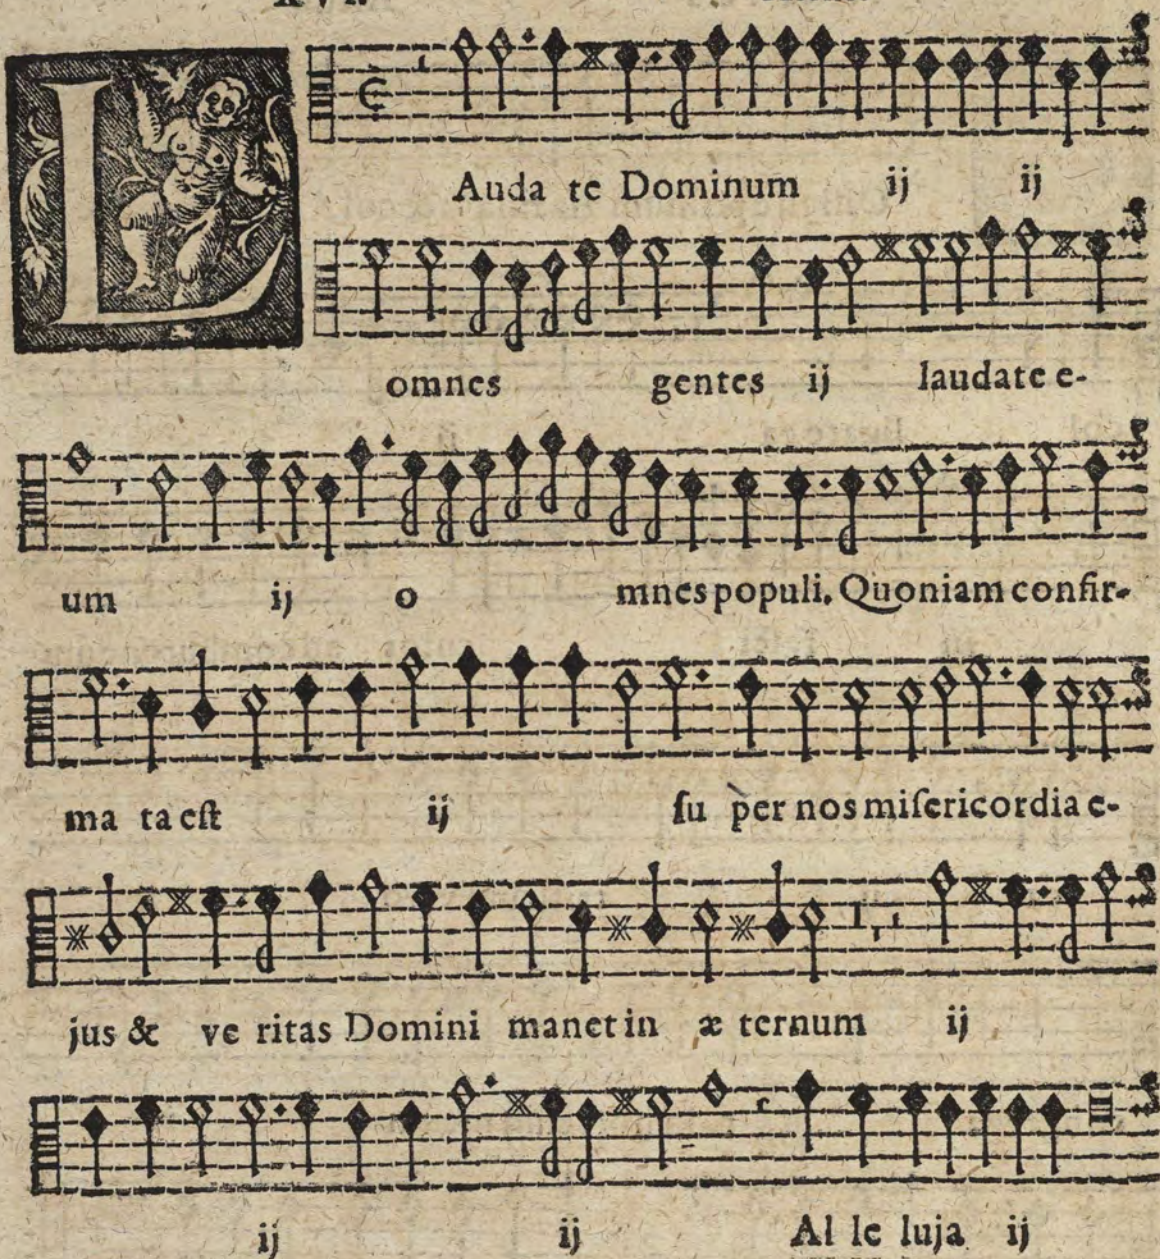 XVI.
LAuda te Dominum ij ij
omnes gentes ij laudate e-
um ij o mnes populi. Quoniam confir-
ma ta eſt ij ſu per nos miſericordia e-
jus & ve ritas Domini manet in æ ternum ij
ij ij Al le luja ij